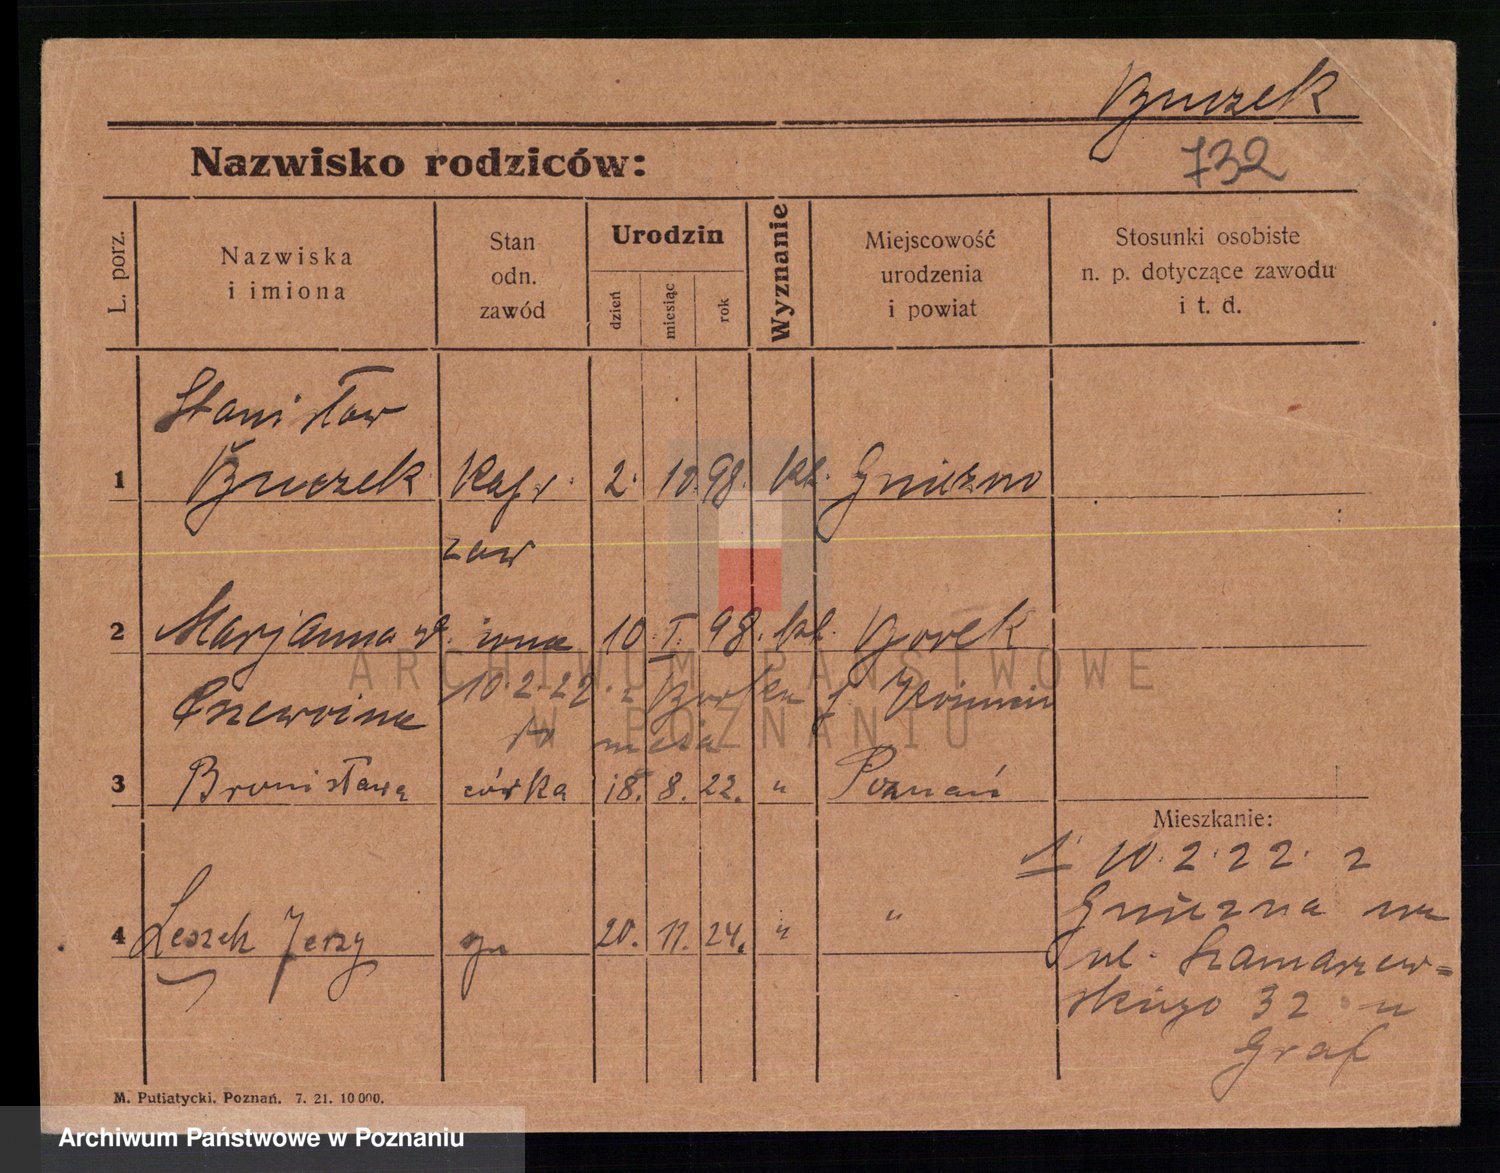 Buczek
732
Nazwisko rodziców:
L. porz.
Nazwiska
i imiona
Stan
odn.
zawód
Urodzin
dzień
miesiąc
rok
Wyznanie
Miejscowość
urodzenia
i powiat
Stosunki osobiste
n. p. dotyczące zawodu
i t. d.
Stanisław
1 Buczek Kapr. 2. 10. 98. kt. Gniezno
zaw
2 Marjanna żona 10. I. 98. kt. Borek
10.2.22. z Borku p. Koźmin
do męża
3 Bronisława córka 18. 8. 22. " Poznań
Mieszkanie:
1. 10.2.22. z
4 Leszek Jerzy syn 20. 11. 24. " "
Gniezna na
ul. Szamarzew=
skiego 32 u
Graf
M. Putiatycki. Poznań. 7. 21. 10 000.
ARCHIWUM PAŃSTWOWE
W POZNANIU
Archiwum Państwowe w Poznaniu